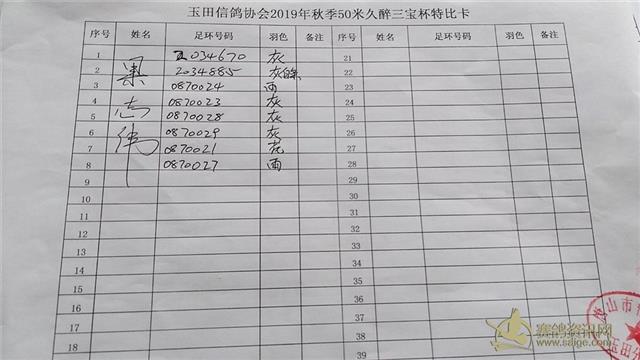 玉田信鸽协会2019年秋季50米久醉三宝杯特比卡
序号 姓名 足环号码 羽色 备注 序号 足环号码 羽色 备注
1 2034670 灰 21
2 梁 2034885 灰白条 22
3 0870024 雨 23
4 0870023 灰 24
5 志 0870028 灰 25
6 0870029 灰 26
7 伟 0870021 花 27
8 0870027 雨 28
9 29
10 30
11 31
12 32
13 33
14 34
15 35
16 36
17 37
18 38
39
赛鸽资讯网
www.saige.com
唐山市
玉田